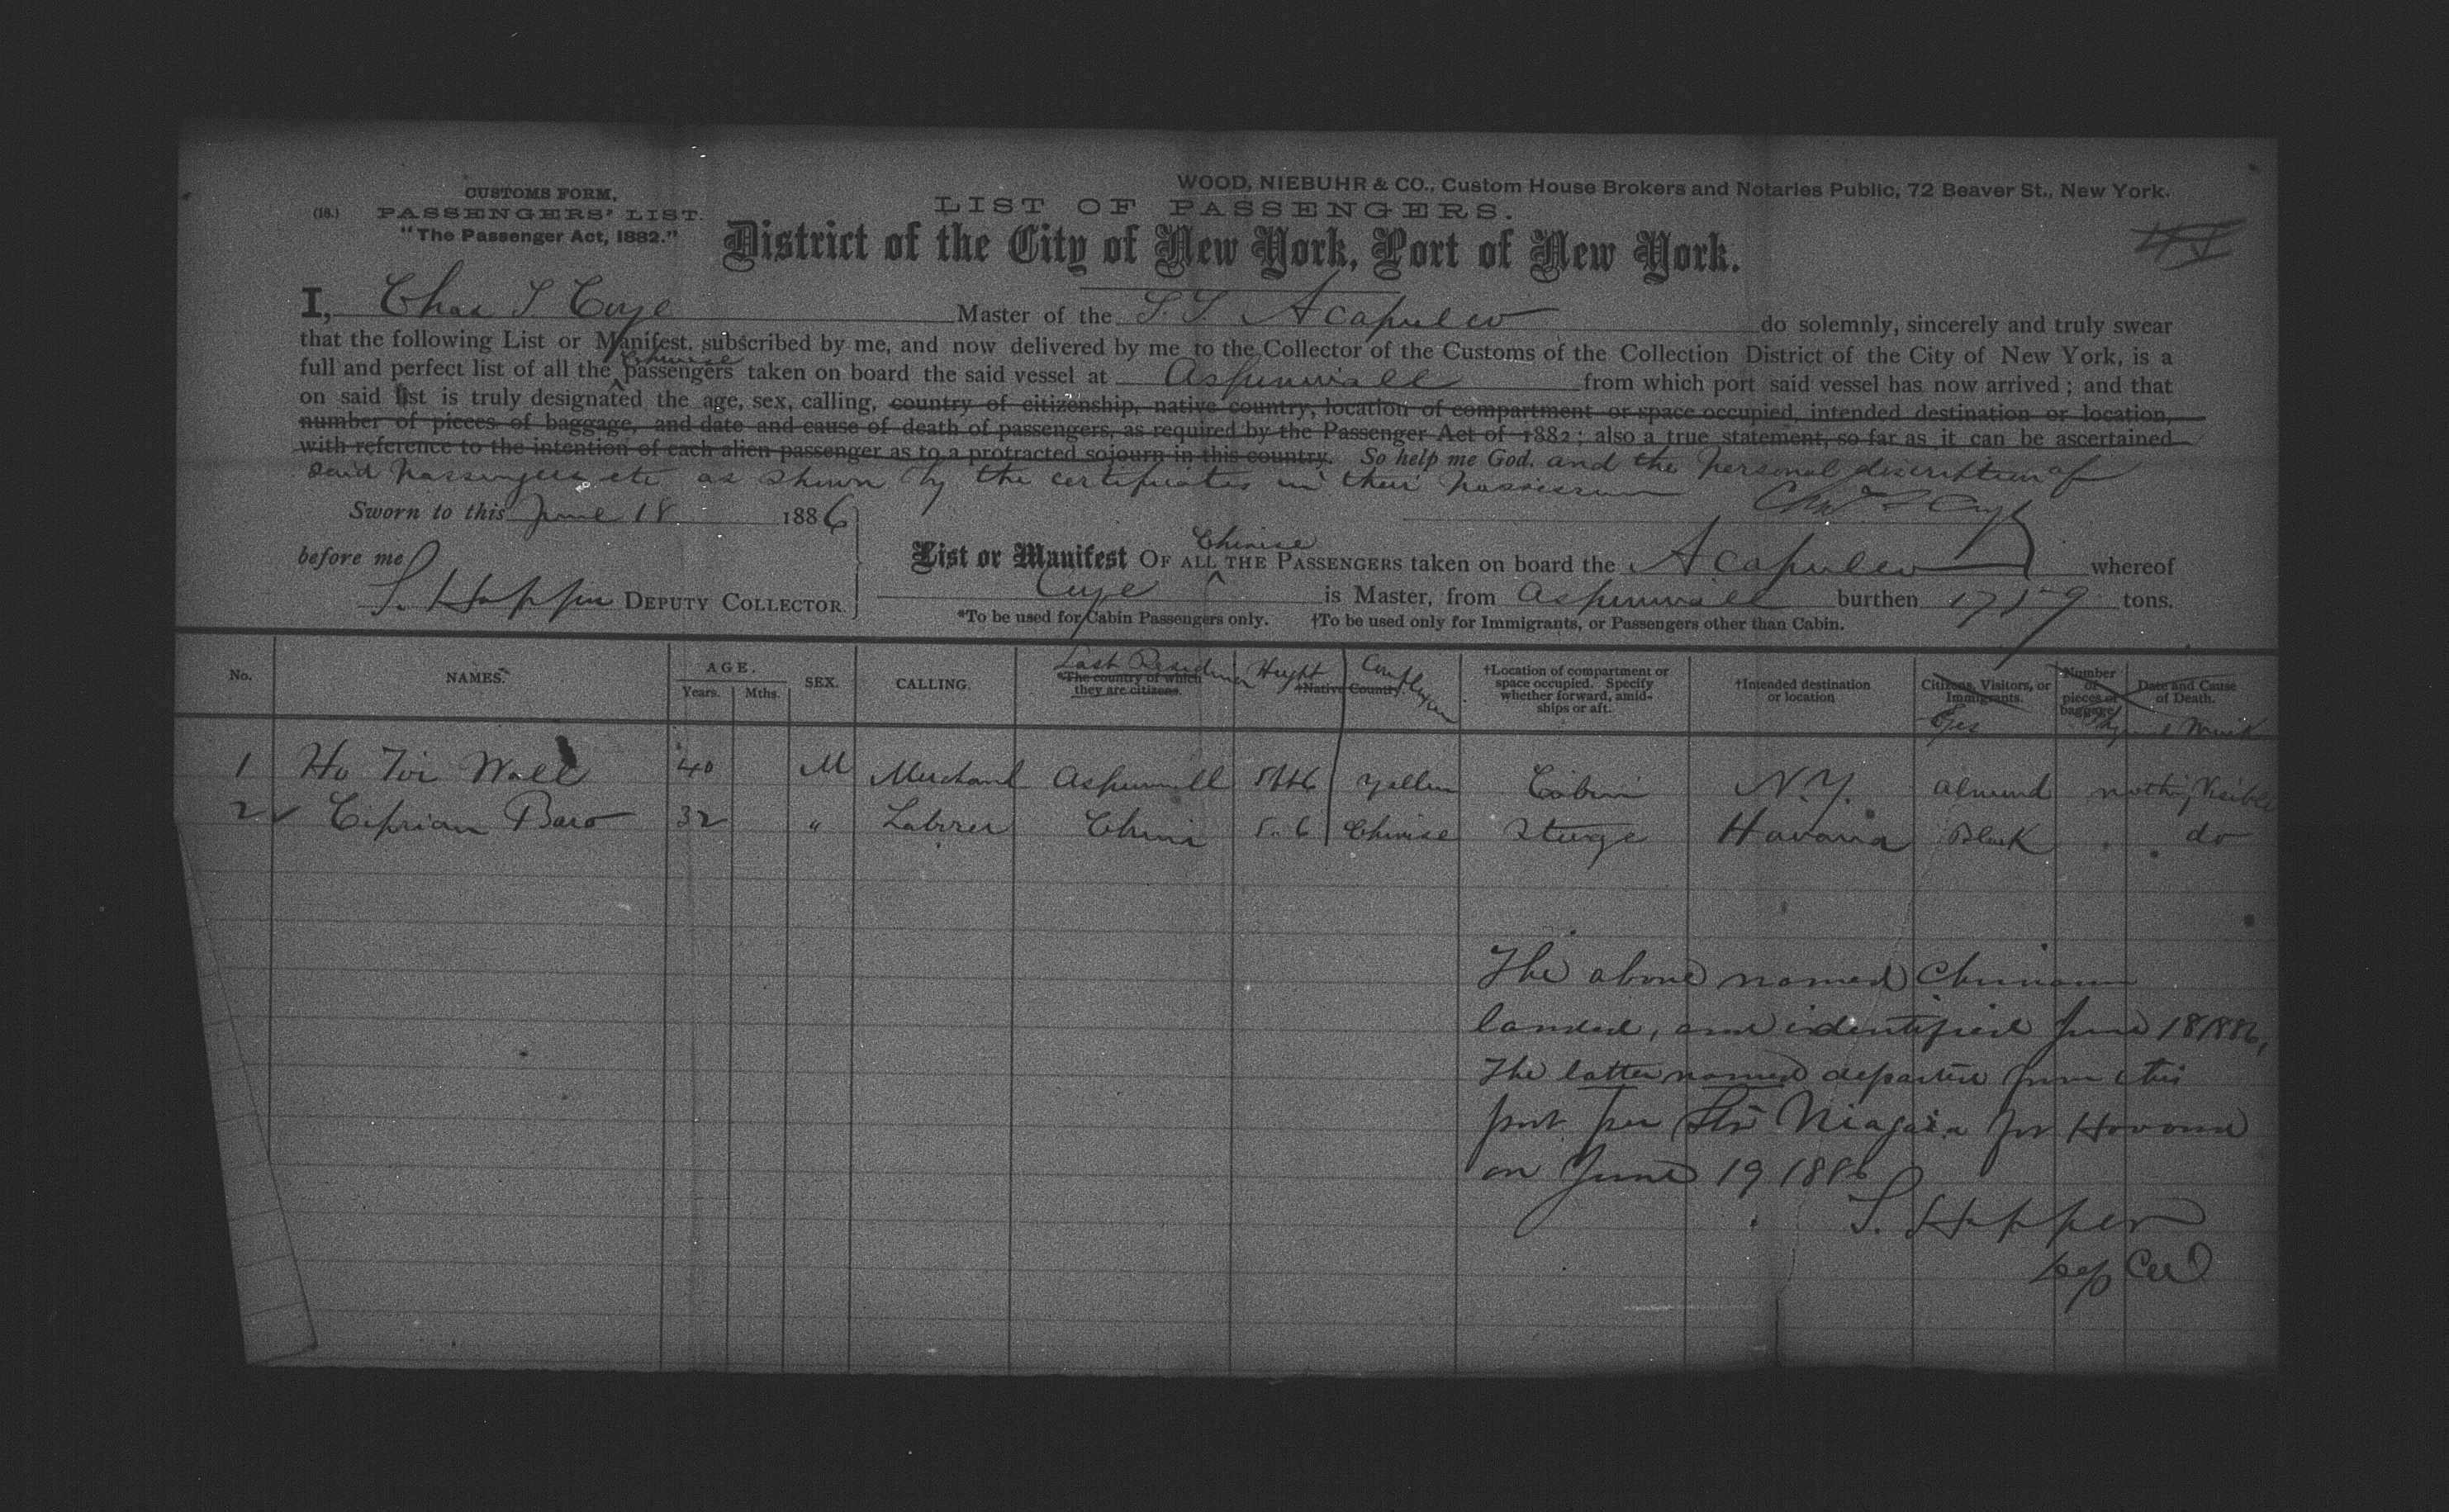 WOOD, NIEBUHR & CO., Custom House Brokers and Notaries Public, 72 Beaver St., New York.
CUSTOMS FORM,
(18.) PASSENGERS' LIST.
"The Passenger Act, 1882."
LIST OF PASSENGERS.
District of the City of New York, Port of New York.
I, Chas S Cuye Master of the S. S Acapulco do solemnly, sincerely and truly swear
that the following List or Manifest, subscribed by me, and now delivered by me to the Collector of the Customs of the Collection District of the City of New York, is a
full and perfect list of all the Chinese passengers taken on board the said vessel at Aspinwall from which port said vessel has now arrived; and that
on said list is truly designated the age, sex, calling, country of citizenship, native country, location of compartment or space occupied, intended destination or location,
number of pieces of baggage, and date and cause of death of passengers, as required by the Passenger Act of 1882; also a true statement, so far as it can be ascertained
with reference to the intention of each alien passenger as to a protracted sojourn in this country. So help me God. and the personal discription of
said passengers etc as shown by the certificates in their possession
Sworn to this June 18 1886
before me
S. Hopper DEPUTY COLLECTOR.
List or Manifest OF ALL Chinese THE PASSENGERS taken on board the Acapulco whereof
Cuye is Master, from Aspinwall burthen tons.
*To be used for Cabin Passengers only. †To be used only for Immigrants, or Passengers other than Cabin.
No. NAMES. AGE. Years. Mths. SEX. CALLING. Last Residence *The country of which they are citizens. Hight †Native Country. Complexion †Location of compartment or space occupied. Specify whether forward, amidships or aft. †Intended destination or location Citizens, Visitors, or Immigrants. Eyes Number of pieces of baggage Date and Cause of Death. Mark
1 Ho Toi Wall 40 M Merchant Aspinwall Yellow Cabin N.Y. Almond nothing Visible
2 Ciprian Baro 32 " Laborer China 5.6 Chinese Steerage Havana Black do
The above named Chinamen
landed, and identified June 18 1886,
The latter named departed from this
port per Str Niagara for Havana
on June 19 1886
S. Hopper
Dep Col